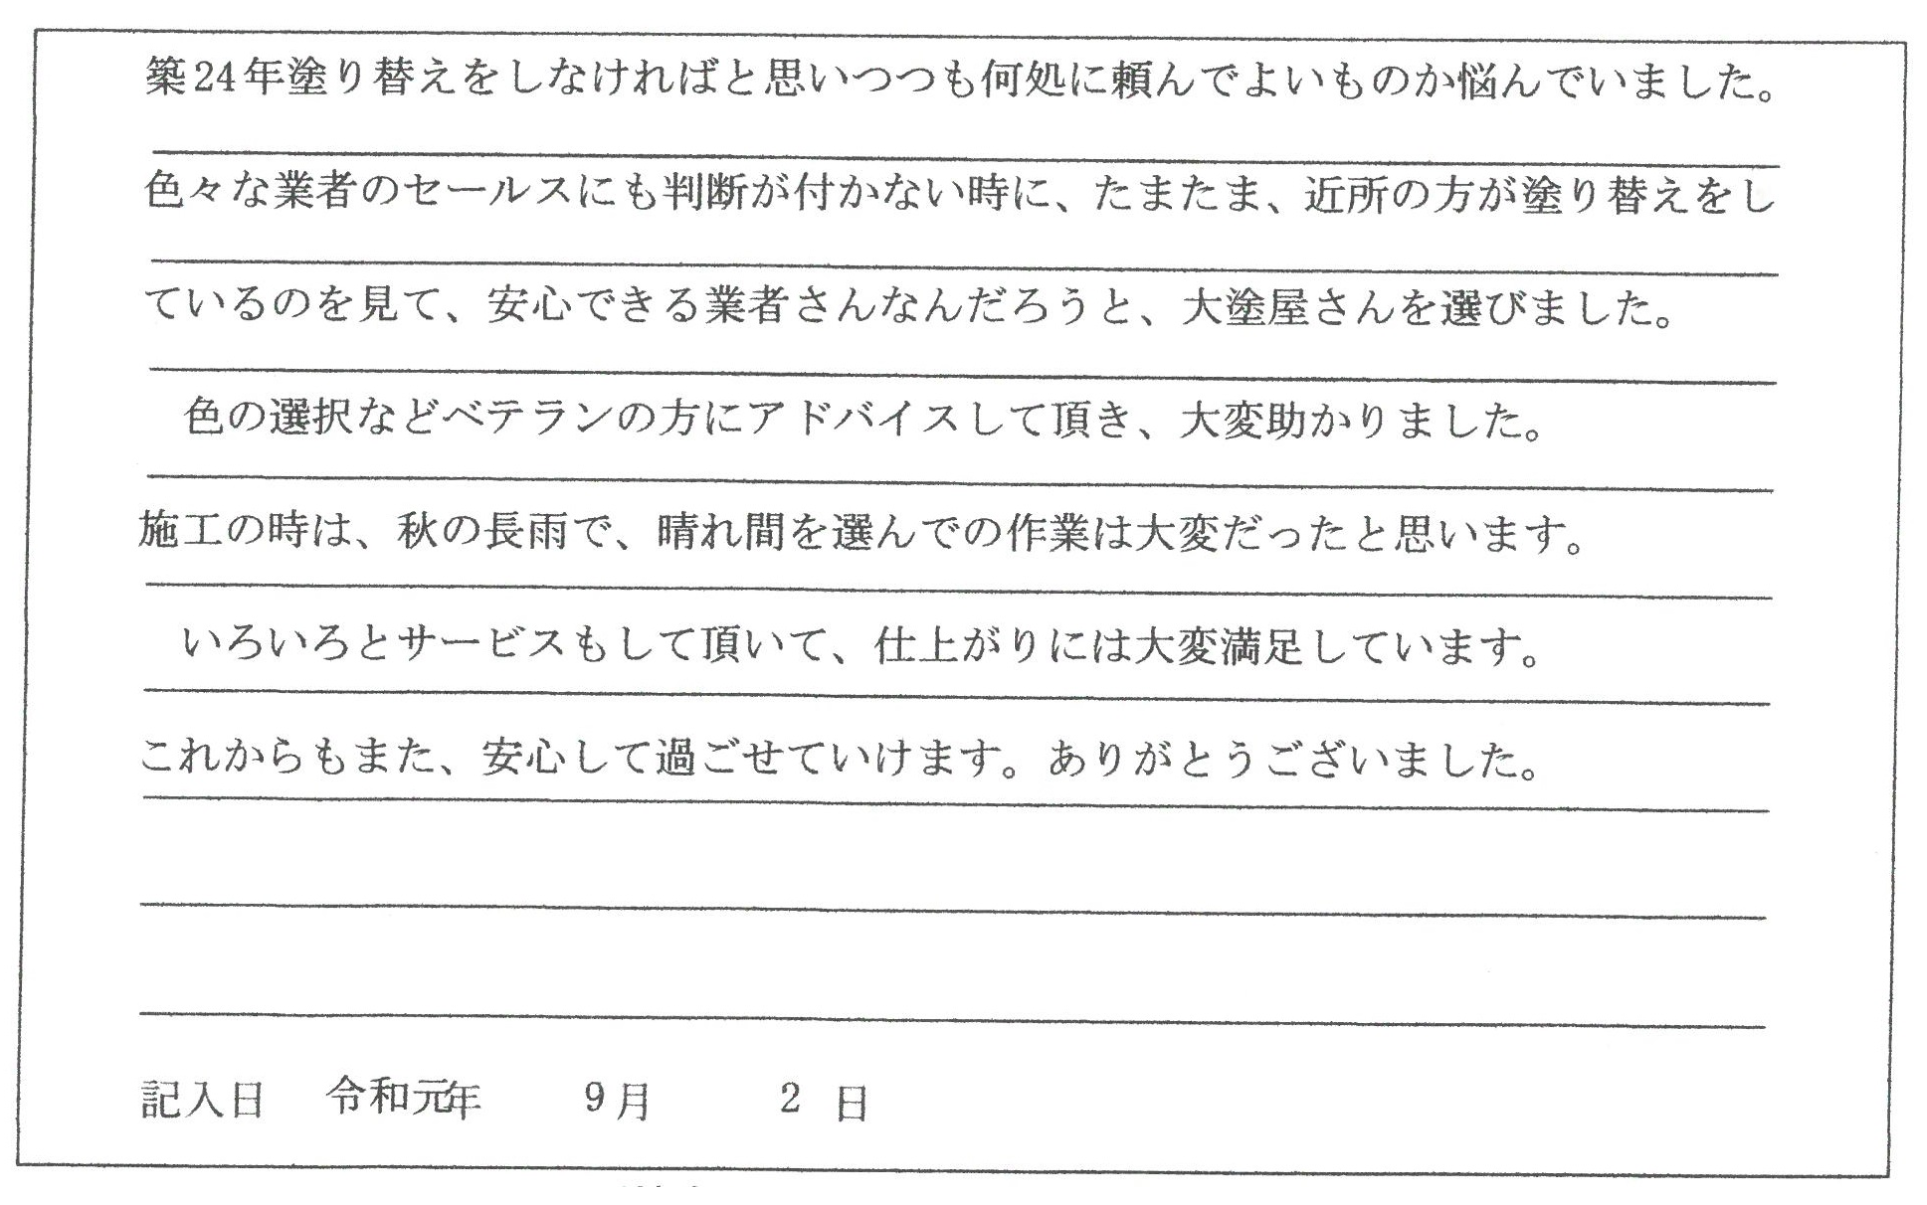 築24年塗り替えをしなければと思いつつも何処に頼んでよいものか悩んでいました。
色々な業者のセールスにも判断が付かない時に、たまたま、近所の方が塗り替えをし
ているのを見て、安心できる業者さんなんだろうと、大塗屋さんを選びました。
色の選択などベテランの方にアドバイスして頂き、大変助かりました。
施工の時は、秋の長雨で、晴れ間を選んでの作業は大変だったと思います。
いろいろとサービスもして頂いて、仕上がりには大変満足しています。
これからもまた、安心して過ごせていけます。ありがとうございました。
記入日 令和元年 9月 2 日